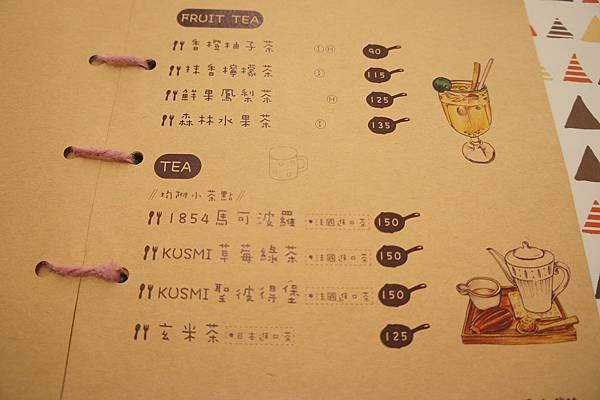 FRUIT TEA
香橙柚子茶 Ⓘ Ⓗ 90
抹香檸檬茶 Ⓘ 115
鮮果鳳梨茶 Ⓗ 125
森林水果茶 Ⓘ 135
TEA
//均附小茶點//
1854馬可波羅 *法國進口茶 150
KUSMI草莓綠茶 *法國進口茶 150
KUSMI聖彼得堡 *法國進口茶 150
玄米茶 *日本進口茶 125